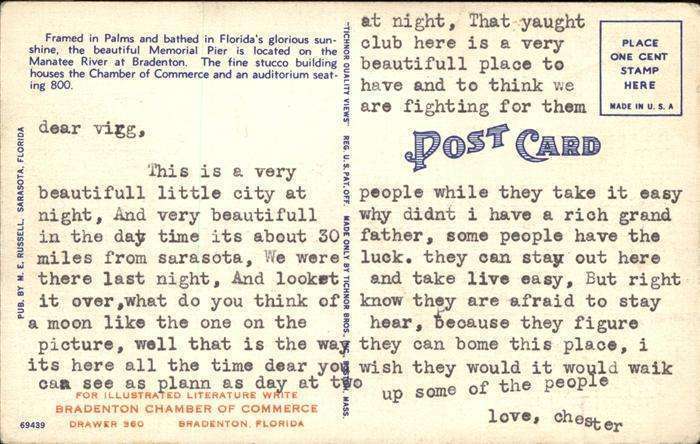 Framed in Palms and bathed in Florida's glorious sun-
shine, the beautiful Memorial Pier is located on the
Manatee River at Bradenton. The fine stucco building
houses the Chamber of Commerce and an auditorium seat-
ing 800.
dear virg,
This is a very
beautifull little city at
night, And very beautifull
in the day time its about 30
miles from sarasota, We were
there last night, And looket
it over,what do you think of
a moon like the one on the
picture, well that is the way
its here all the time dear you
can see as plann as day at two
at night, That yaught
club here is a very
beautifull place to
have and to think we
are fighting for them
people while they take it easy
why didnt i have a rich grand
father, some people have the
luck. they can stay out here
and take live easy, But right
know they are afraid to stay
hear, because they figure
they can bome this place, i
wish they would it would waik
up some of the people
love, chester
PLACE
ONE CENT
STAMP
HERE
MADE IN U. S. A
POST CARD
PUB. BY M. E. RUSSELL, SARASOTA, FLORIDA
"TICHNOR QUALITY VIEWS" REG. U. S. PAT. OFF. MADE ONLY BY TICHNOR BROS., MASS.
FOR ILLUSTRATED LITERATURE WRITE
BRADENTON CHAMBER OF COMMERCE
DRAWER 360 BRADENTON, FLORIDA
69439